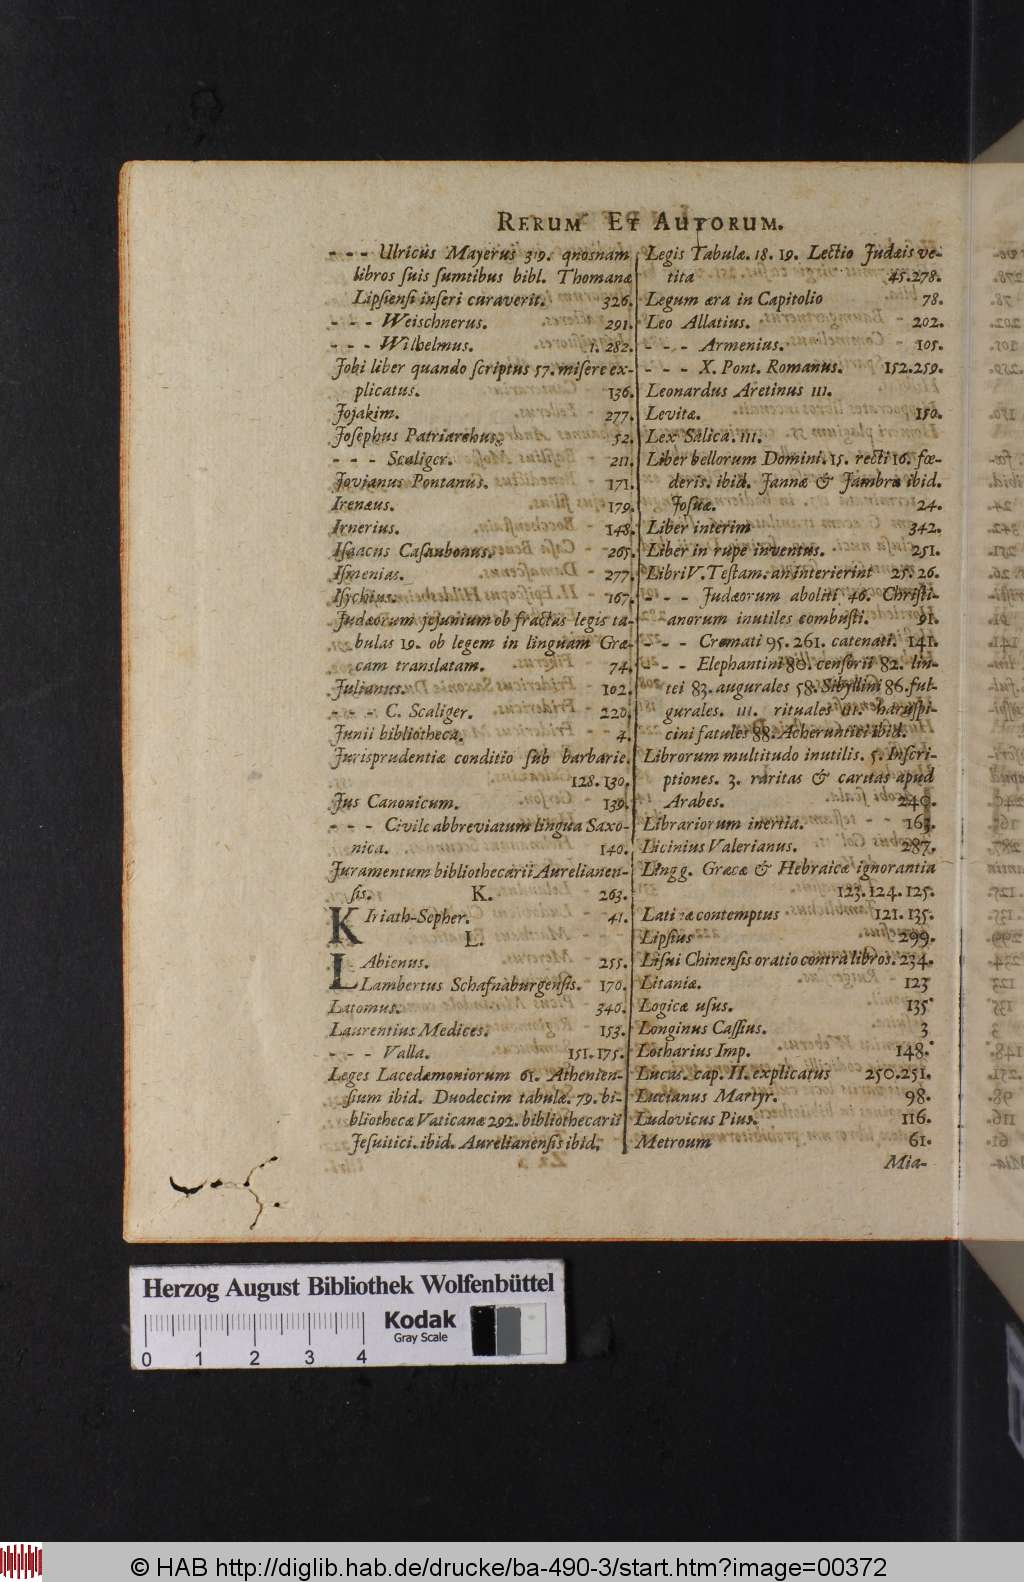 RERUM ET AUTORUM.
- - - Ulricus Mayerus 319. quosnam
libros ſuis ſumtibus bibl. Thomanæ
Lipſienſi inſeri curaverit. 326.
- - - Weischnerus. 291.
- - - Wilhelmus. 1. 282.
Jobi liber quando ſcriptus 57. miſere ex-
plicatus. 136.
Jojakim. 277.
Joſephus Patriarchus. 52.
- - - Scaliger. 211.
Jovianus Pontanus. 171.
Irenæus. 179.
Irnerius. 148.
Iſaacus Caſaubonus. 265.
Iſmenias. 277.
Iſychius. 167.
Judæorum jejunium ob fractas legis ta-
bulas 19. ob legem in linguam Græ-
cam translatam. 74.
Julianus. 102.
- - - C. Scaliger. 220.
Junii bibliotheca. 4.
Jurisprudentiæ conditio ſub barbarie.
128. 130.
Jus Canonicum. 139.
- - - Civile abbreviatum lingua Saxo-
nica. 140.
Juramentum bibliothecarii Aurelianen-
ſis. 263.
K.
Kiriath-Sepher. 41.
L.
LAbienus. 255.
Lambertus Schafnaburgenſis. 170.
Latomus. 340.
Laurentius Medices. 153.
- - - Valla. 151. 175.
Leges Lacedæmoniorum 61. Athenien-
ſium ibid. Duodecim tabulæ. 79. bi-
bliothecæ Vaticanæ 292. bibliothecarii
Jeſuitici. ibid. Aurelianenſis ibid.
Legis Tabulæ. 18. 19. Lectio Judæis ve-
tita 45. 278.
Legum æra in Capitolio 78.
Leo Allatius. 202.
- - - Armenius. 105.
- - - X. Pont. Romanus. 152. 259.
Leonardus Aretinus 111.
Levitæ. 150.
Lex Salica. 111.
Liber bellorum Domini. 15. recti 16. fœ-
deris. ibid. Jannæ & Jambræ ibid.
Joſuæ. 24.
Liber interim 342.
Liber in rupe inventus. 251.
Libri V. Teſtam. an interierint 25. 26.
- - - Judæorum aboliti 46. Chriſti-
anorum inutiles combuſti. 91.
- - - Cremati 95. 261. catenati. 141.
- - - Elephantini 80. cenſorii 82. lin-
tei 83. augurales 58. Sibyllini 86. ful-
gurales. 111. rituales 111. haruſpi-
cini fatales 88. Acheruntici ibid.
Librorum multitudo inutilis. 5. Inſcri-
ptiones. 3. raritas & caritas apud
Arabes. 240.
Librariorum inertia. 163.
Licinius Valerianus. 287.
Lingg. Græcæ & Hebraicæ ignorantia
123. 124. 125.
Latinæ contemptus 121. 135.
Lipſius 299.
Liſui Chinenſis oratio contra libros. 234.
Litaniæ. 123
Logicæ uſus. 135
Longinus Caſſius. 3
Lotharius Imp. 148.
Lucas. cap. II. explicatus 250. 251.
Lucianus Martyr. 98.
Ludovicus Pius. 116.
Metroum 61.
Mia-
Herzog August Bibliothek Wolfenbüttel
Kodak
Gray Scale
0 1 2 3 4
© HAB http://diglib.hab.de/drucke/ba-490-3/start.htm?image=00372